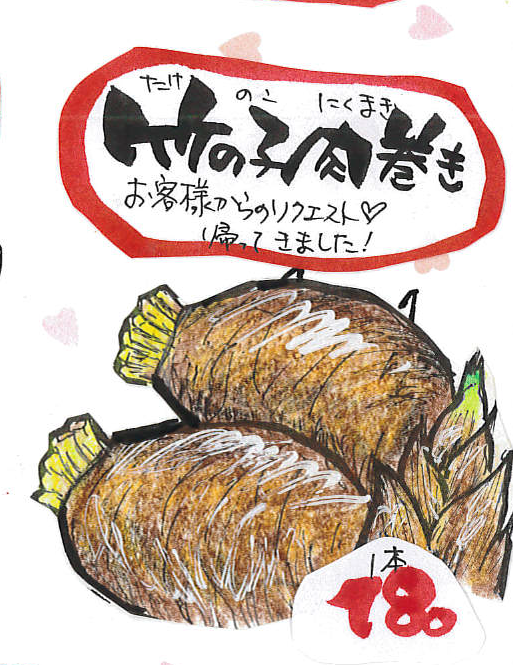 たけ のこ にくまき
竹の子肉巻き
お客様からのリクエスト♡
帰ってきました!
1本
180